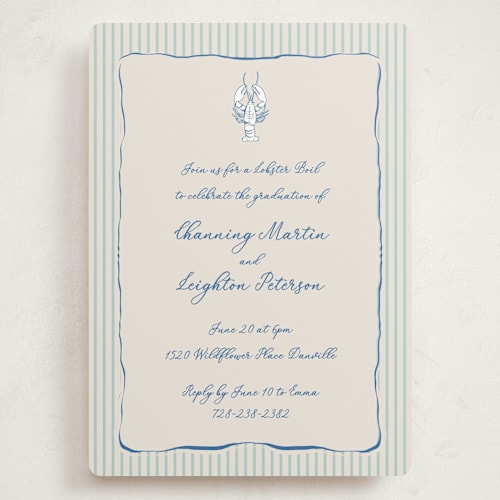 Join us for a Lobster Boil
to celebrate the graduation of
Channing Martin
and
Leighton Peterson
June 20 at 6pm
1520 Wildflower Place Danville
Reply by June 10 to Emma
728-238-2382